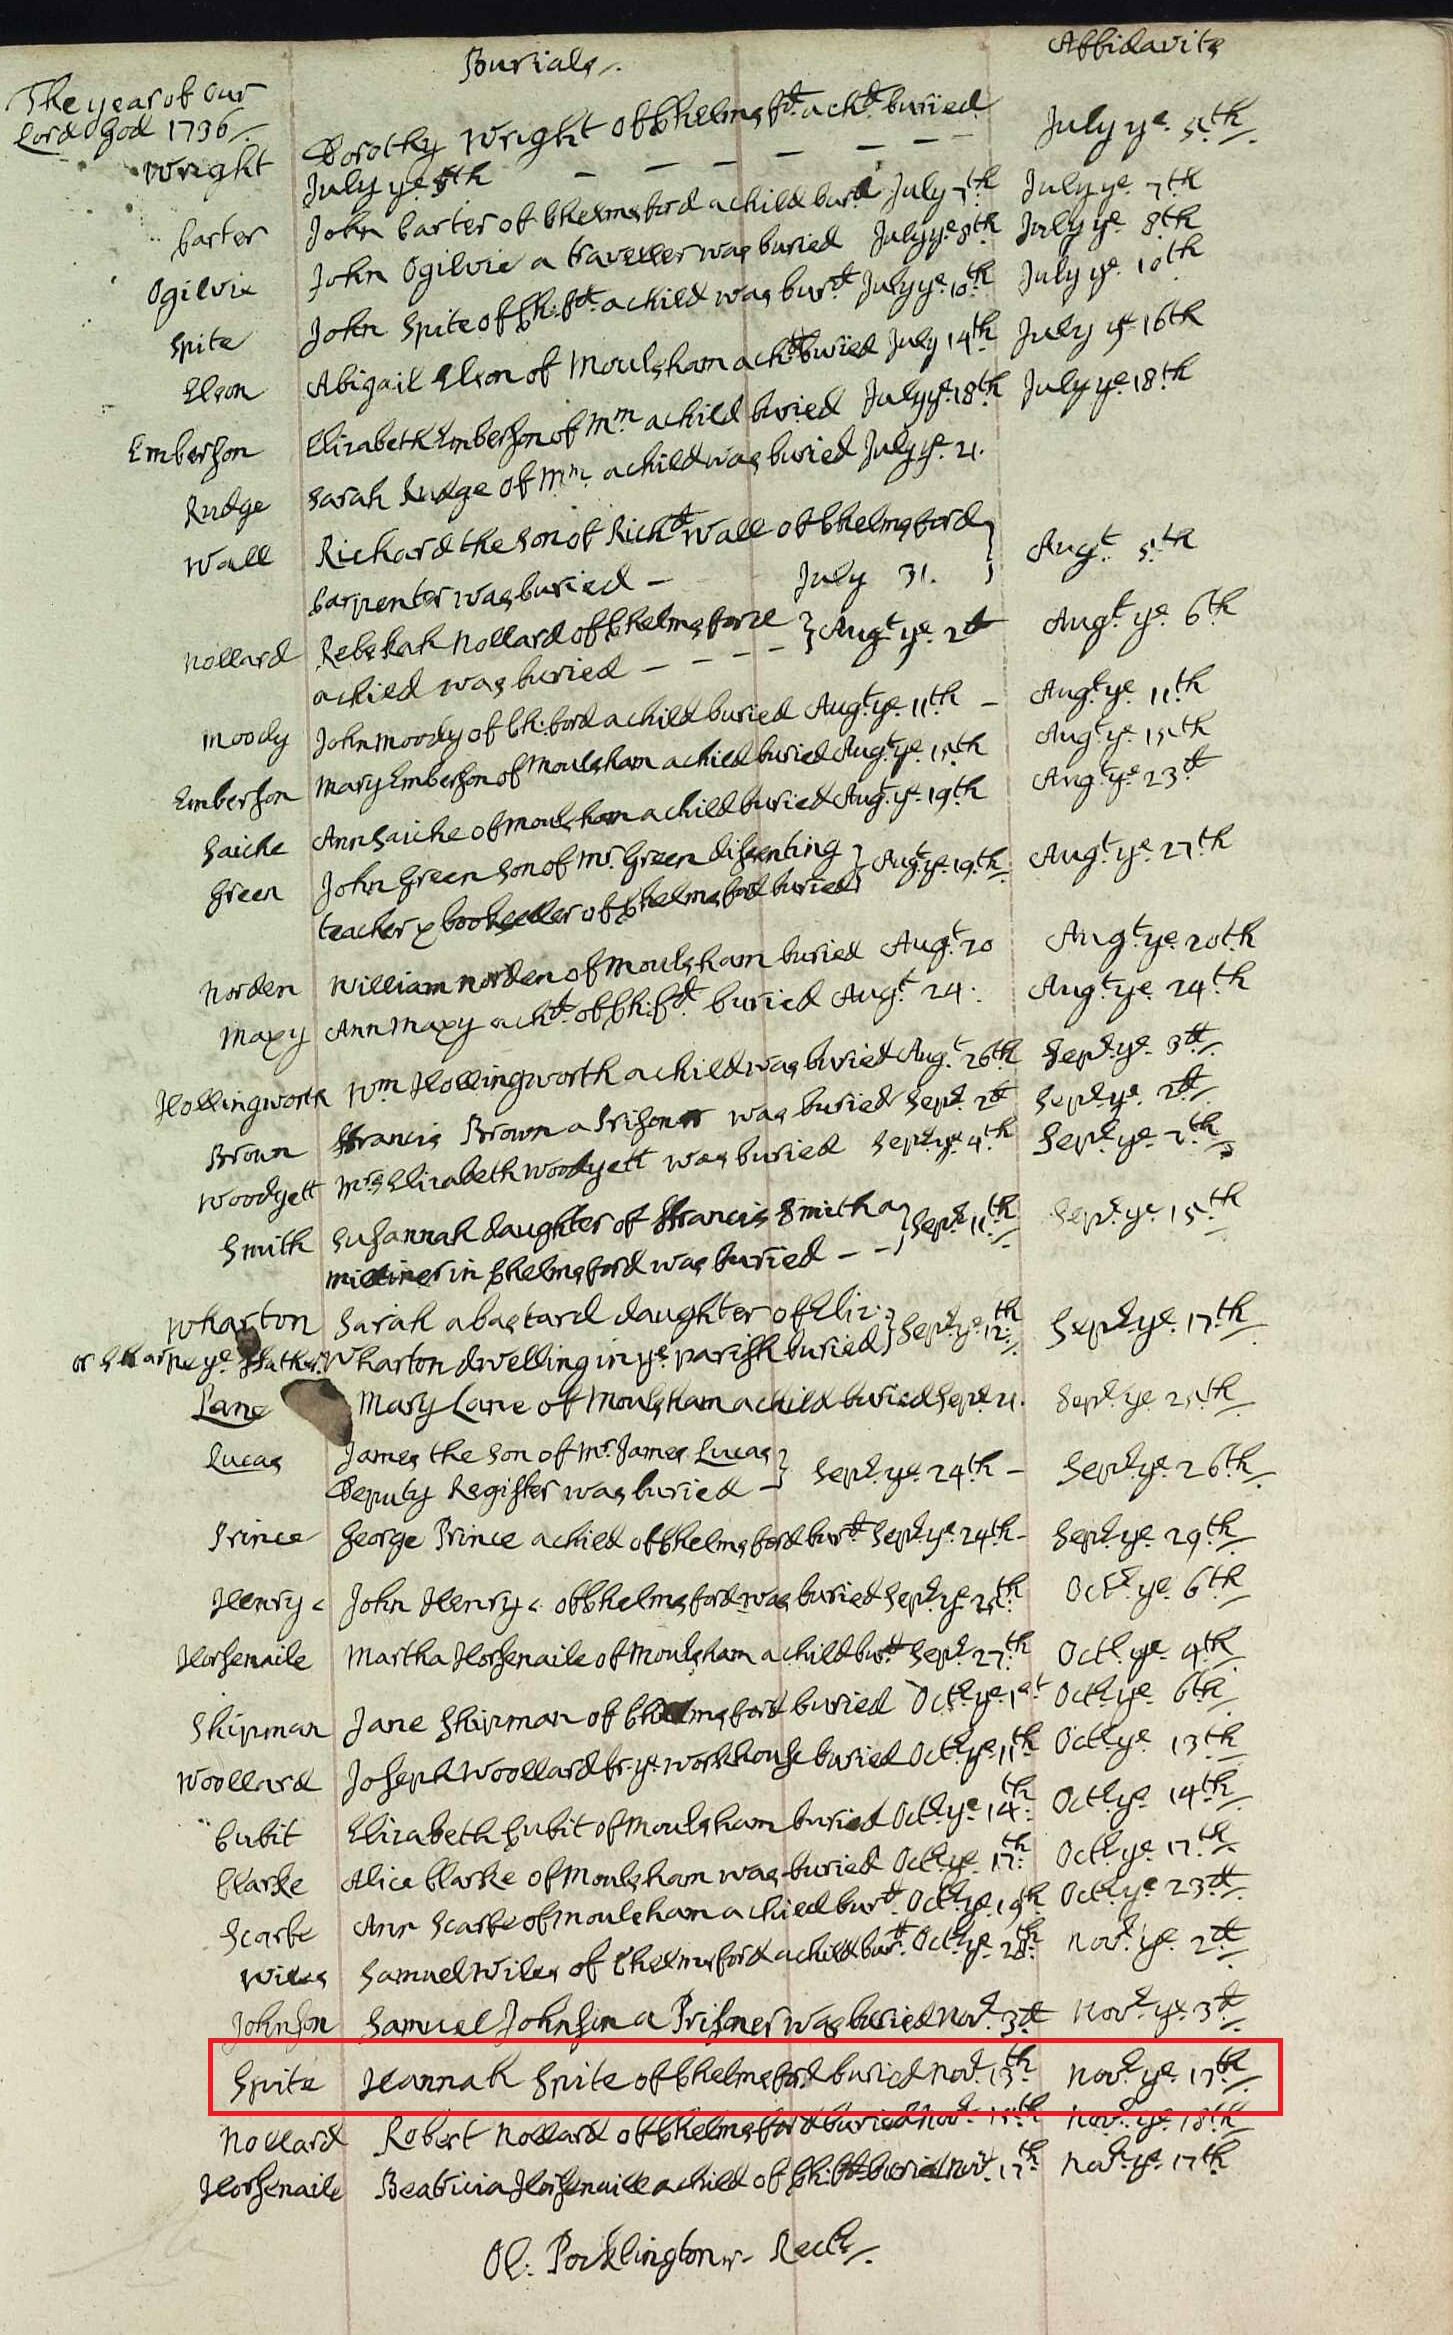 Burials. Affidavits
The year of our
Lord God 1736
Wright Dorothy Wright of Chelmsfd. a chd. buried July ye. 5th.
July ye 5th
Carter John Carter of Chelmsford a child burd July 7th July ye. 7th
Ogilvie John Ogilvie a traveller was buried July ye 8th July ye. 8th
Spite John Spite of Ch:fd. a child was burd July ye. 10th July ye. 10th
Elson Abigail Elson of Moulsham a chd buried July 14th July ye 16th
Emberson Elizabeth Emberson of Mm a child buried July ye. 18th July ye. 18th
Rudge Sarah Rudge of Mm. a child was buried July ye. 21.
Wall Richard the son of Richd Wall of Chelmsford Augt. 5th
Carpenter was buried – July 31.
Nollard Rebekah Nollard of Chelmsford Augt. ye. 2d Augt. ye. 6th
a child was buried – – – –
Moody John Moody of Ch:ford a child buried Augt. ye. 11th – Augt. ye. 11th
Emberson Mary Emberson of Moulsham a child buried Augt. ye. 15th Augt. ye. 15th
Saiche Ann Saiche of Moulsham a child buried Augt. ye. 19th Augt. ye. 23d
Green John Green son of Mr. Green dissenting Augt. ye. 19th. Augt. ye. 27th
teacher & bookseller of Chelmsford buried
Norden William Norden of Moulsham buried Augt. 20 Augt. ye. 20th
Maxy Ann Maxy a chd. of Ch:fd. buried Augt. 24. Augt. ye. 24th
Hollingworth Wm Hollingworth a child was buried Augt. 26th Sept. ye. 3d.
Brown Francis Brown a Prisoner was buried Sept. 2d Sept. ye. 2d.
Woodyett Mrs Elizabeth Woodyett was buried Sept. ye. 4th Sept. ye. 7th
Smith Susannah daughter of Francis Smith a Sept. 11th Sept. ye. 15th
milliner in Chelmsford was buried – –
Wharton Sarah a bastard daughter of Eliz: Sept. ye. 12th. Sept. ye. 17th
or Sharpe ye. Father Wharton dwelling in ye. parish buried
Lane Mary Lane of Moulsham a child buried Sept. 21. Sept. ye 25th
Lucas James the son of Mr. James Lucas Sept. ye. 24th – Sept. ye. 26th
Deputy Register was buried –
Prince George Prince a child of Chelmsford burd Sept. ye. 24th – Sept. ye. 29th
Henry John Henry of Chelmsford was buried Sept. ye. 25th Oct. ye. 6th
Horsenaile Martha Horsenaile of Moulsham a child burd Sept. 27th Oct. ye. 4th
Shipman Jane Shipman of Chelmsford buried Oct. ye. 1st Oct. ye. 6th
Woollard Joseph Woollard fr. ye. workhouse buried Oct. ye. 11th Oct. ye. 13th
Cubit Elizabeth Cubit of Moulsham buried Oct. ye. 14th. Oct. ye. 14th
Clarke Alice Clarke of Moulsham was buried Oct. ye. 17th. Oct. ye. 17th
Scarfe Ann Scarfe of Moulsham a child burd. Oct. ye. 19th Oct. ye. 23d
Wiles Samuel Wiles of Chelmsford a child burd. Oct. ye. 28th Nov. ye. 2d
Johnson Samuel Johnson a Prisoner was buried Nov. 3d Nov. ye. 3d.
Spite Hannah Spite of Chelmsford buried Nov. 13th Nov. ye 17th
Nollard Robert Nollard of Chelmsford buried Nov. 15th Nov. ye 18th
Horsenaile Beatricia Horsenaile a child of Ch:fd buried Nov. 17th Nov. ye. 17th
Ol: Pocklington – Rectr.